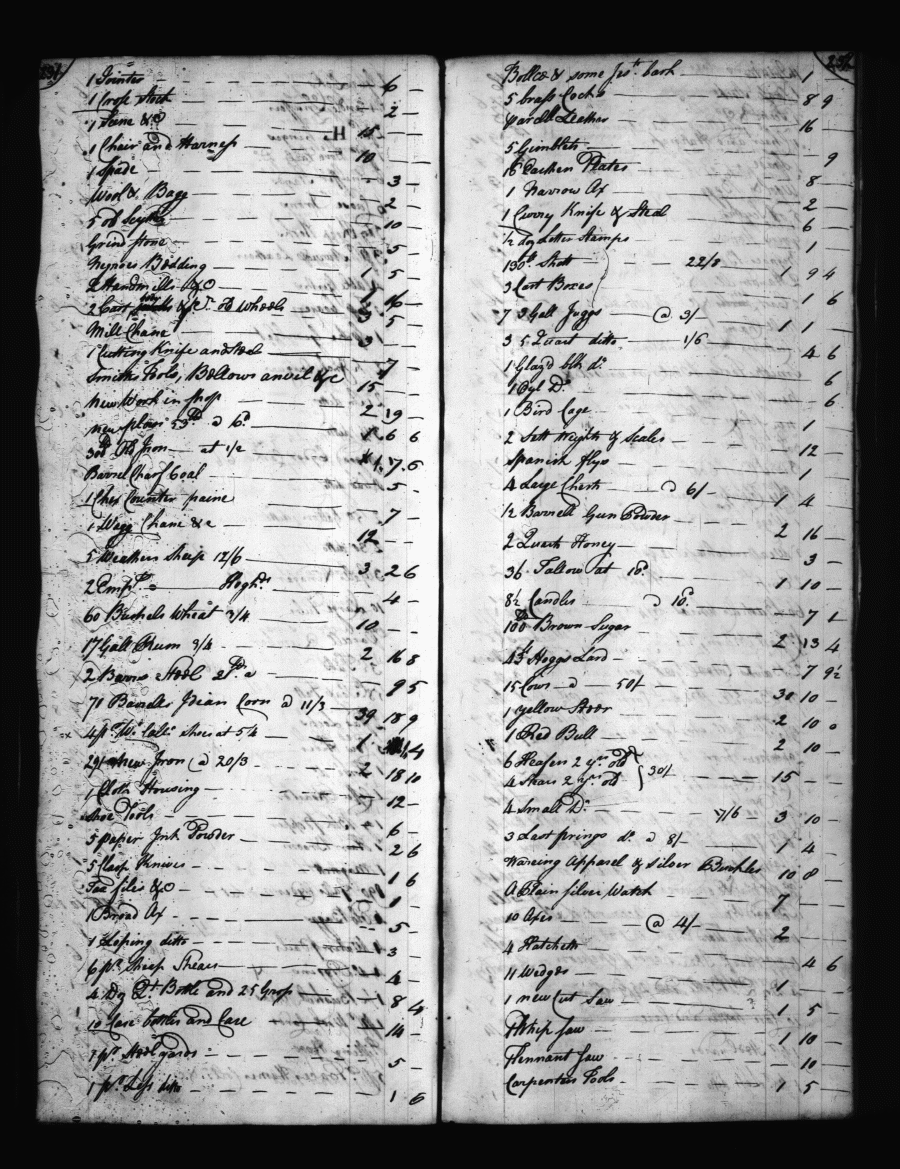 1 Jointer 6 -
1 Cross Stock 2 -
1 Seine &c 15 -
1 Chair and Harness 10
1 Spade 3 -
Wool & Bagg 2 -
5 old Scythes 10 -
Grind stone 5 -
Negroes Bedding 1 5 -
2 Handmills &c
2 Cart &c old Wheels
Mill Chane
1 Cutting Knife and Steel 7 -
Smiths Tools, Bellows anvil &c 15
New Work in shop 2 19 -
new plows 53 lb @ 6d 1 6 6
30 lb Old Iron at 1/2 1 7 6
Barrel Charf Coal 5 -
1 Chex Counter paine 7 -
1 Wagg Chane &c 12
5 Weathers sheep 12/6 3 2 6
2 Empty Hoghds 4 -
60 Bushels Wheat 3/4 10 -
17 Gall Rum 3/4 2 16 8
2 Barrs Steel 9 5
71 Barrels Indian Corn @ 11/3 39 18 9
4 pr shoes at 5/4 1 1 4
29 new Iron @ 20/3 2 18 10
1 Cloth Housing 12 -
Shoe Tools 6 -
5 paper Ink Powder 2 6
5 Clasp Knives 1 6
files &c 1
1 Broad Ax 5 -
1 ditto 3
6 pr Sheep Shears 4 -
4 Doz Qt Bottle and 25 Gross 1 8 4
10 Case bottles and Case 14 -
1 pr Steelyards 5
1 pr Less ditto 1 6
Bottle & some Jest bark 1
5 brass Cocks 8 9
parcel Leather 16 -
5 Gimblets 9
16 Earthen Plates 8
1 Narrow Ax 2 -
1 Curry Knife & Steal 6
1/2 doz Letter Stamps 1
130 lb Shott 22/3 1 9 4
3 Cart Boxes 1 6
7 3 Gall Juggs @ 3/ 1 1
3 5 Quart ditto 1/6 4 6
1 Glaz'd blk do 6
1 Oyl Do 6
1 Bird Cage 1
2 Sett Weights & Scales 12 -
Spanish flys 1
4 Large Chests @ 6/ 1 4
1/2 Barrell Gun Powder 2 16 -
2 Quarts Honey 3
36 Tallow at 10d 1 10 -
8 1/2 Candles @ 10d 7 1
100 Brown Sugar 2 13 4
Hoggs Lard 7 9 1/2
15 Cows @ 50/ 30 10 -
1 yellow Steer 2 10 0
1 Red Bull 2 10 -
6 Heafers 2 yrs old
4 Stears 2 yrs old 30/ 15 -
4 Small Do 17/6 3 10 -
3 Last springs do @ 8/ 1 4 -
Wareing Apparel & silver Buckles 10 8
A Plain silver Watch 7
10 Axes @ 4/ 2
4 Hatchets 4 6
11 Wedges 1
1 new Cut Saw 1 5
Whip Saw 1 10
Tennant Saw 10
Carpenters Tools 1 5